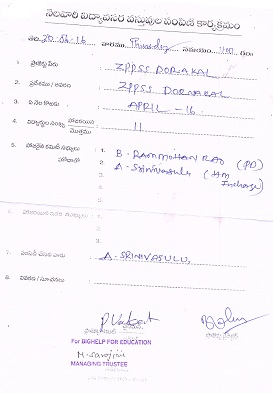 నెలవారి విద్యావసర వస్తువుల పంపిణి కార్యక్రమం
తేది. 20-04-16 వారము Thursday సమయం 4:00
1. ప్రాజెక్టు పేరు : ZPPSS DORNAKAL
2. ZPPSS DORNAKAL
3. ఏ నెల కొరకు : APRIL - 16
4. విద్యార్థుల సంఖ్య హాజరైనది
మొత్తము 11
5. హాజరైన కమిటీ సభ్యులు : 1. B. RAMMOHAN RAO (PD)
2. A. Srinivasulu (HM
Incharge)
3.
4.
5.
6. 1.
2.
3.
7. పంపిణీ చేసిన వారు : A. SRINIVASULU.
8. వివరణ / సూచనలు :
For BIGHELP FOR EDUCATION
M. Sarojini
MANAGING TRUSTEE